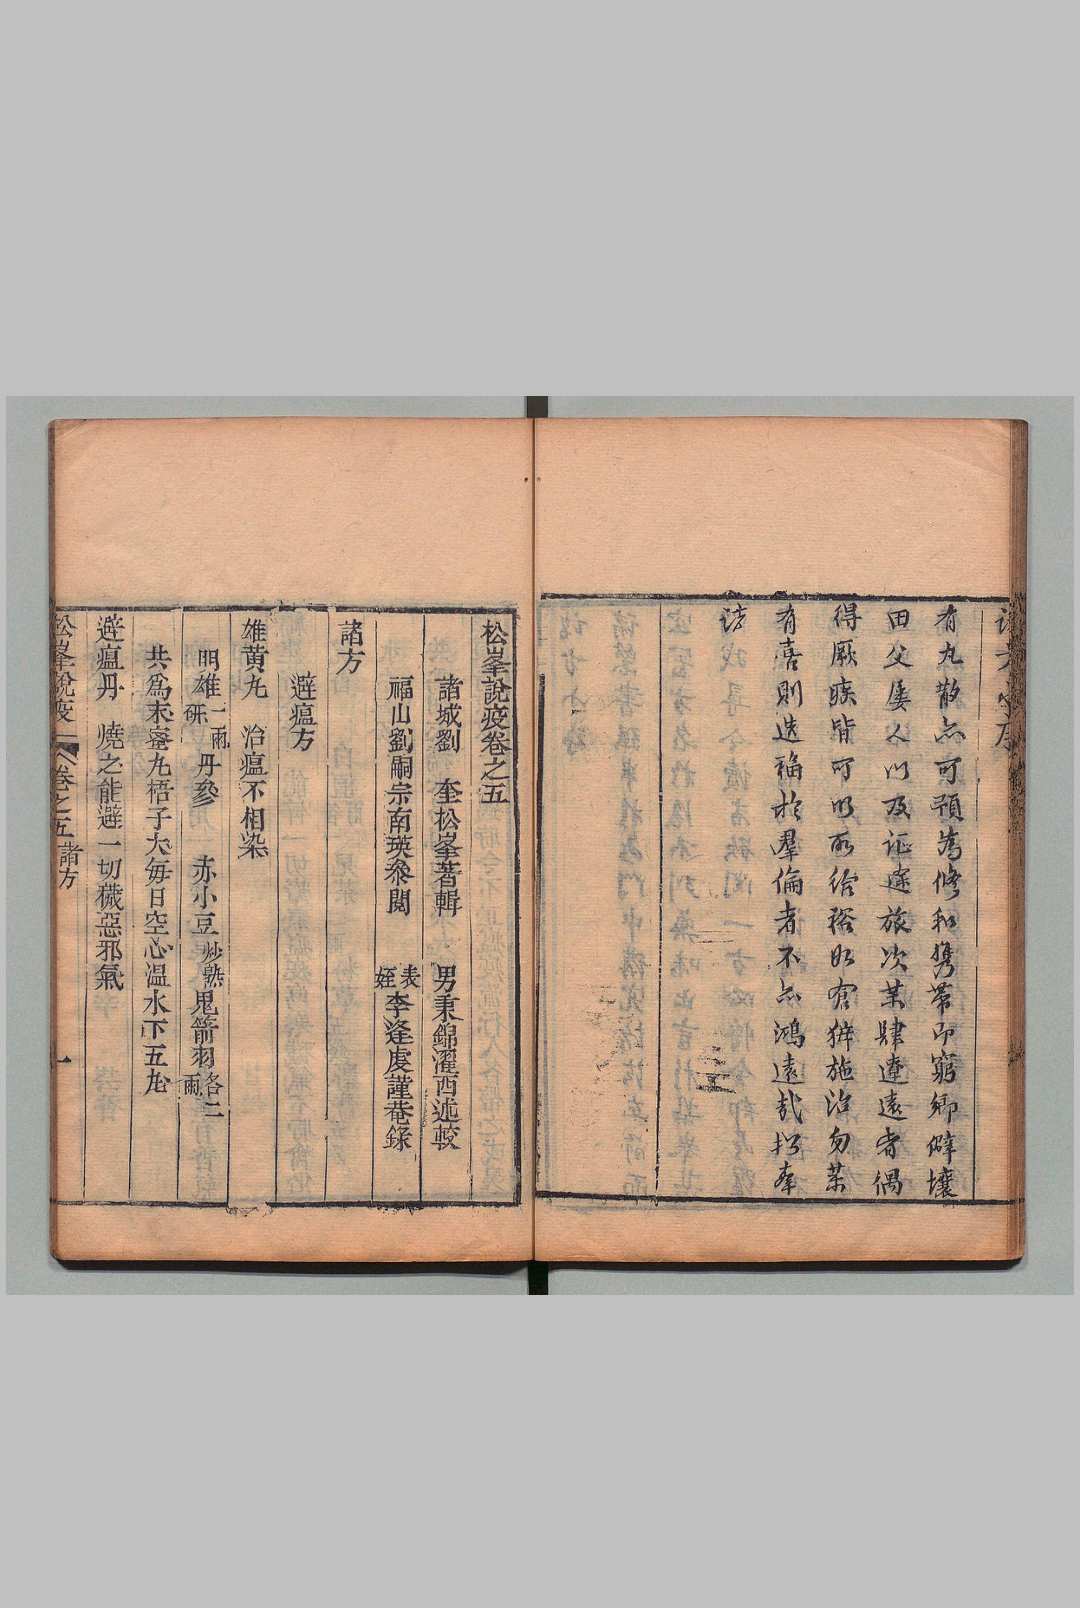 有丸散亦可預為修和携帶即窮鄉僻壤
田父屢人以及征途旅次某肆遼遠者偶
得厥疾皆可以所給裕如奮獅施治勿藥
有喜則造福於羣倫者不亦鴻遠哉
松峯說疫卷之五
諸城劉　奎松峯著輯　男秉錦濯西述較
福山劉嗣宗南瑛叅閱　表姪李逢虔謹菴錄
諸方
避瘟方
雄黃丸　治瘟不相染
明雄一兩研　丹參　赤小豆炒熟　鬼箭羽各二兩
共爲末蜜丸梧子大每日空心溫水下五丸
避瘟丹　燒之能避一切穢惡邪氣
松峯說疫　卷之五諸方　一